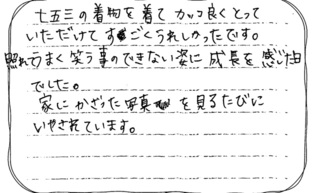 七五三の着物を着てカッコ良くとって
いただけてすごくうれしかったです。
照れてうまく笑う事のできない姿に成長を感じた日
でした。
家にかざった写真を見るたびに
いやされています。